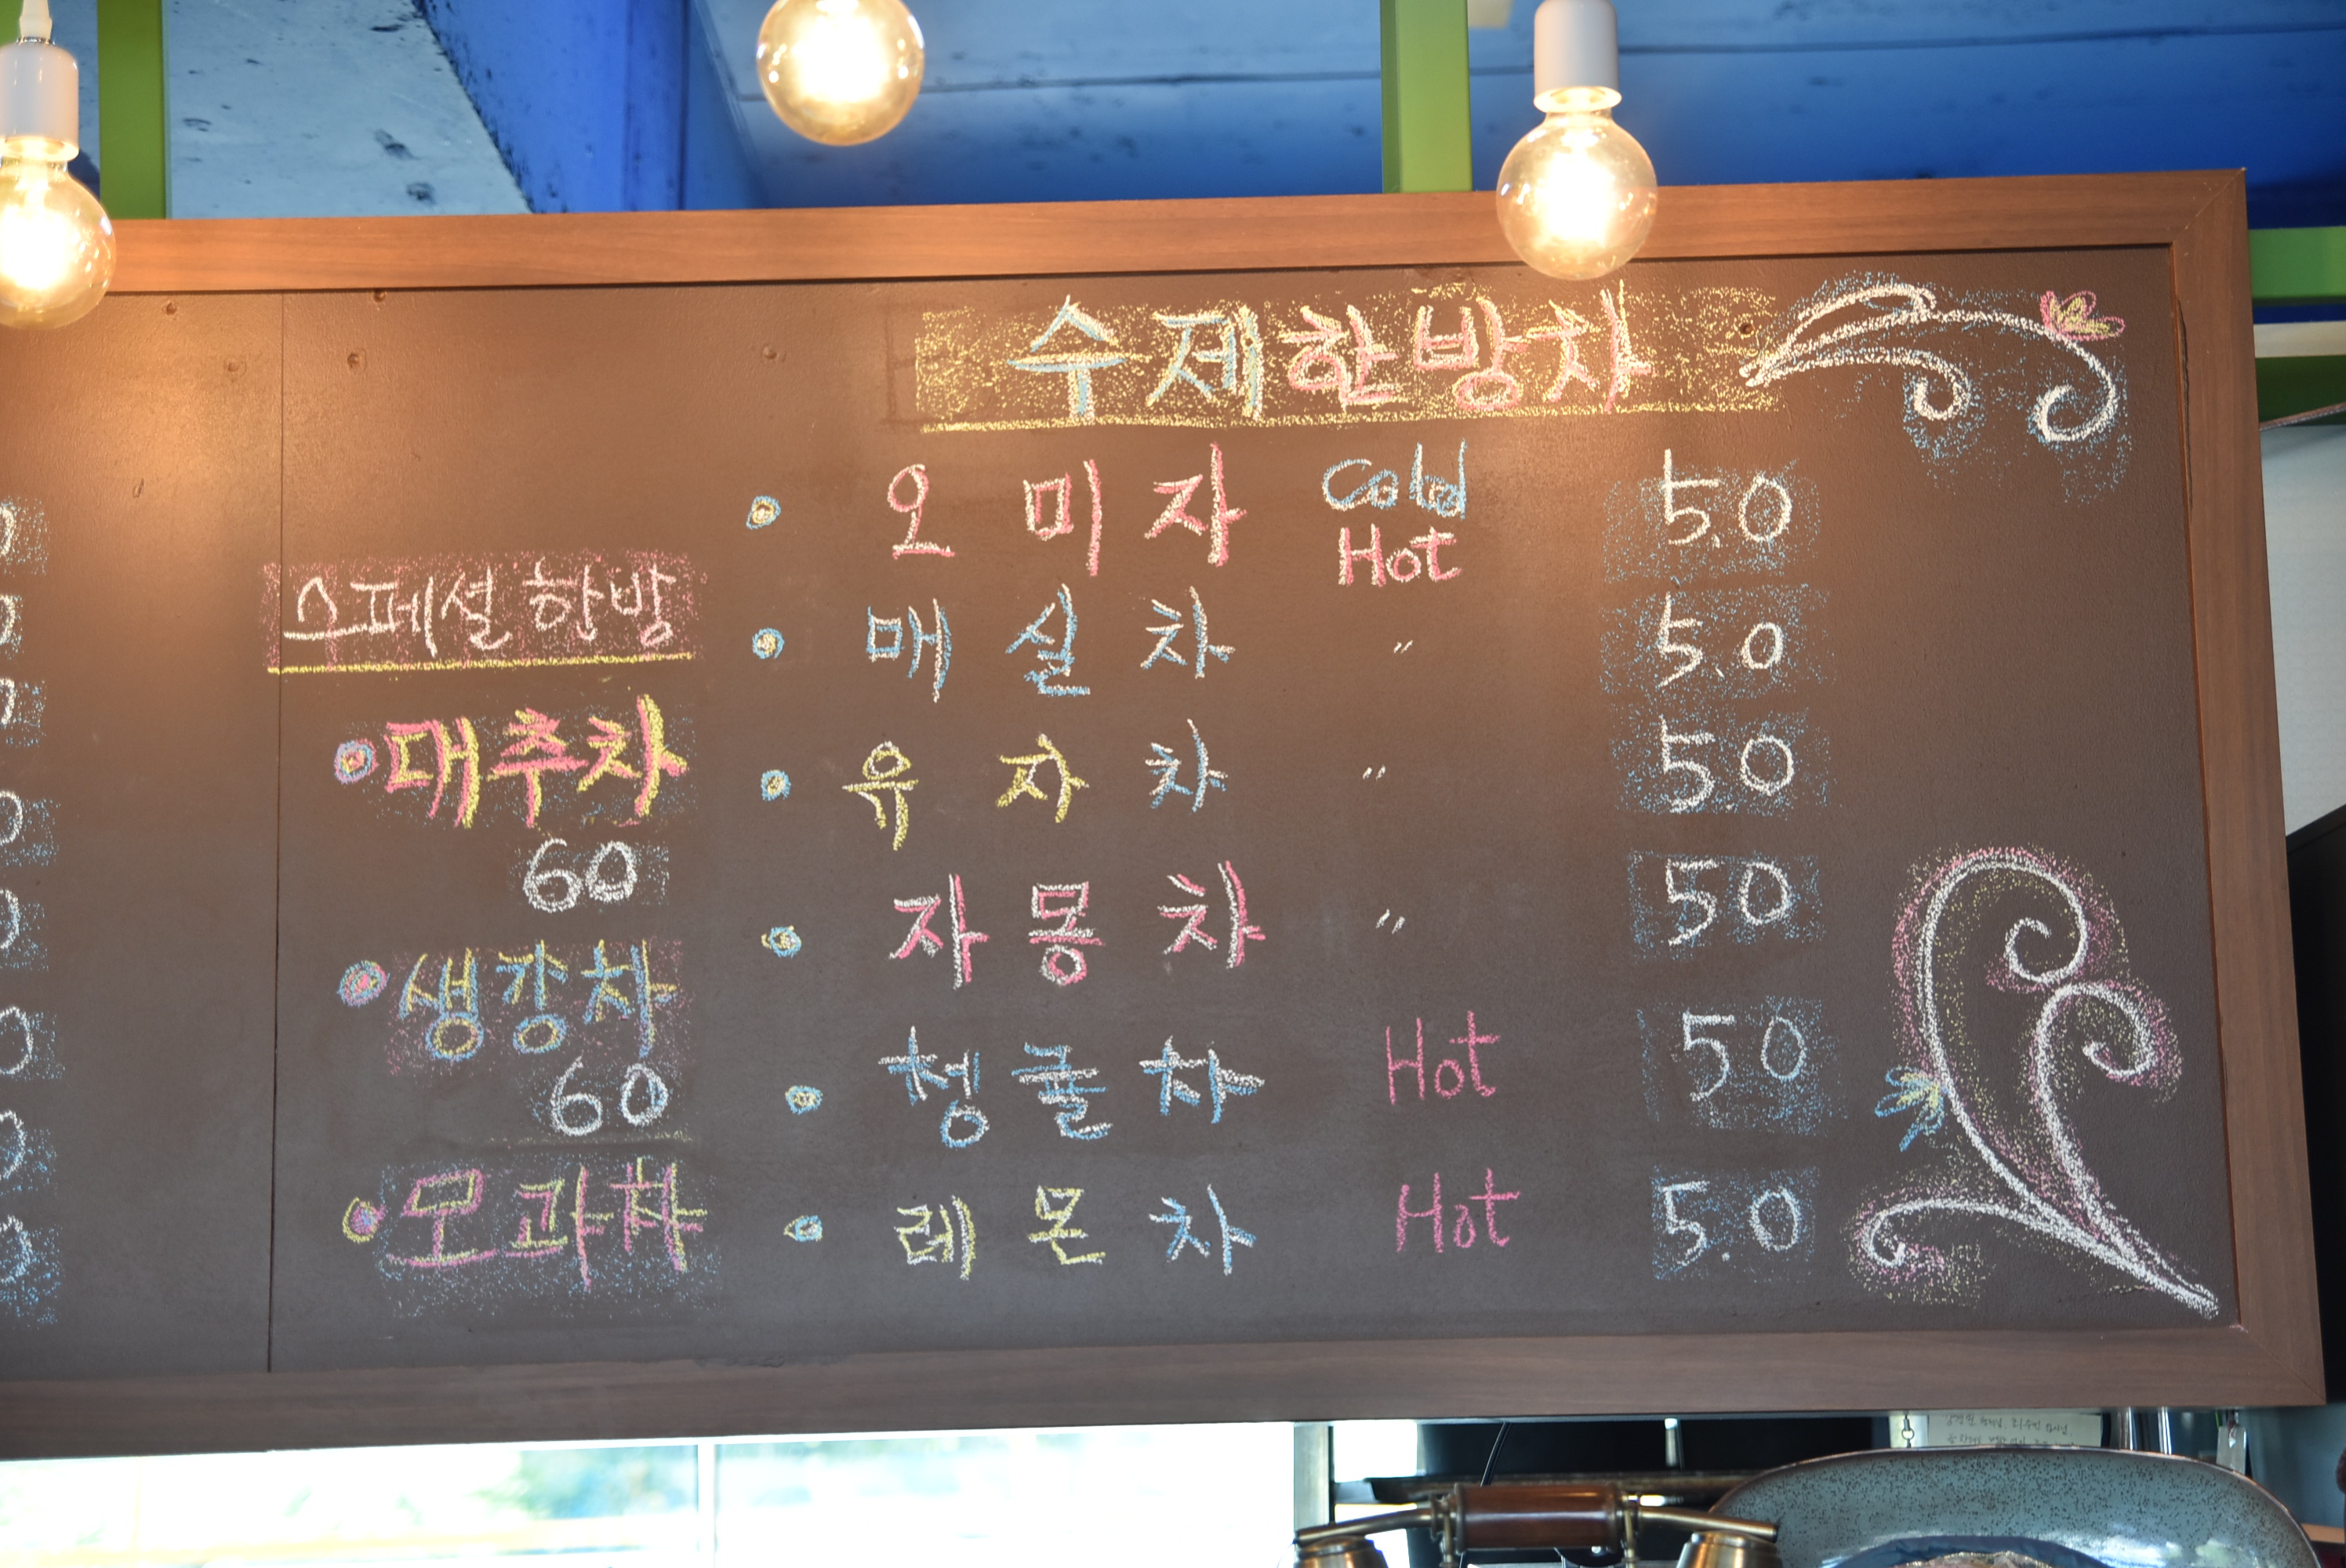 수제한방차
• 오미자 Cold Hot 5.0
• 매실차 〃 5.0
• 유자차 〃 5.0
• 자몽차 〃 50
• 청귤차 Hot 50
• 레몬차 Hot 5.0
스페셜 한방
• 대추차
60
• 생강차
60
• 모과차